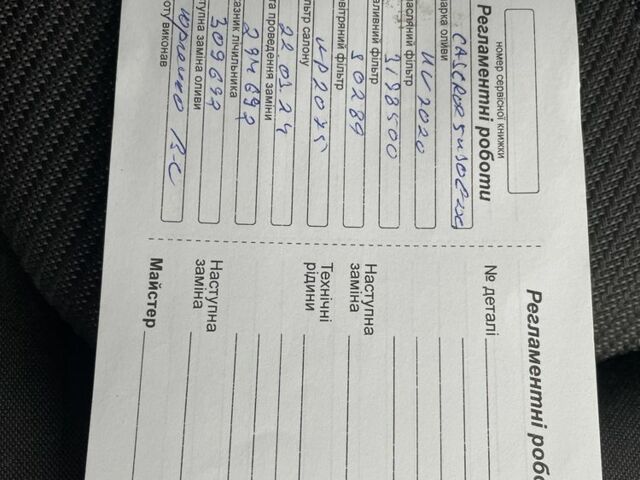 номер сервісної книжки
Регламентні роботи
арка оливи
CASTROL 5W30
асляний фільтр
UV 2020
аливний фільтр
3198500
овітряний фільтр
S0289
льтр салону
кр2075
та проведення заміни
22.03.24
азник лічильника
294692
ступна заміна оливи
309692
оту виконав
Регламентні робо
№ деталі
Наступна
заміна
Технічні
рідини
Наступна
заміна
Майстер